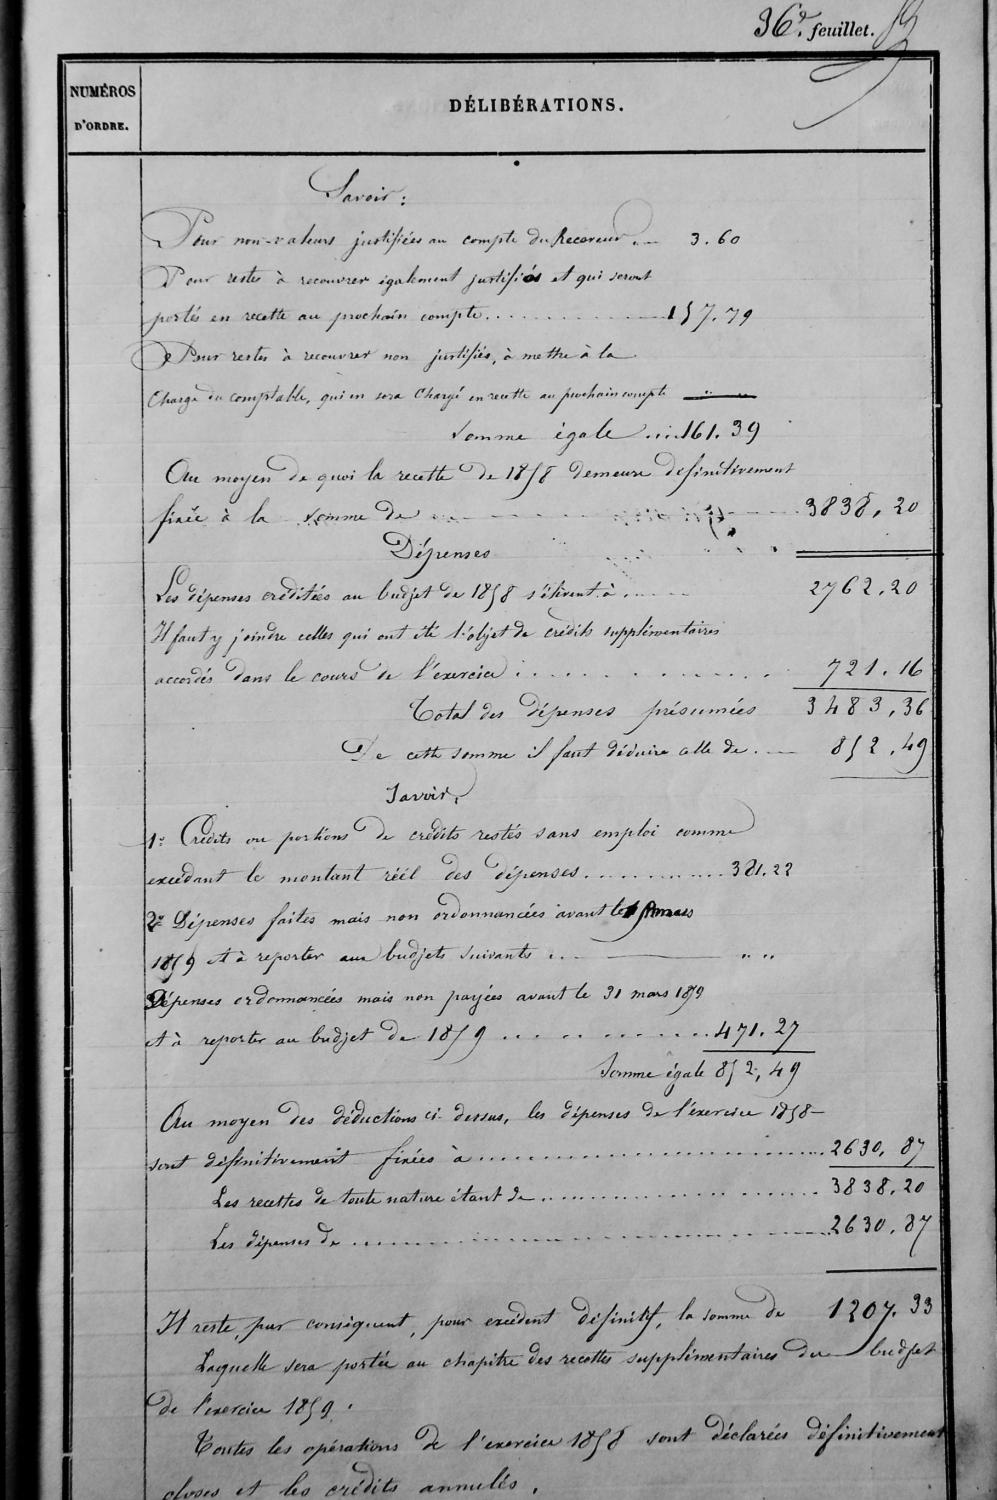 36e. feuillet.
NUMÉROS
D'ORDRE.
DÉLIBÉRATIONS.
Savoir:
Pour non-valeurs justifiées au compte du Receveur. 3.60
Pour restes à recouvrer également justifiés et qui seront
portés en recette au prochain compte.................157.79
Pour restes à recouvrer non justifiés, à mettre à la
charge du comptable, qui en sera chargé en recette au prochain compte " "
Somme égale ....161.39
Au moyen de quoi la recette de 1858 demeure définitivement
fixée à la somme de 3838,20
Dépenses
Les dépenses créditées au budjet de 1858 s'élèvent à ..... 2762.20
Il faut y joindre celles qui ont été l'objet de crédits supplémentaires
accordés dans le cours de l'exercice .............. 721.16
Total des dépenses présumées 3483,36
De cette somme il faut déduire celle de .— 852,49
Savoir,
1° Crédits ou portions de crédits restés sans emploi comme
excédant le montant réel des dépenses............381.22
2° Dépenses faites mais non ordonnancées avant le mars
1859 et à reporter aux budjets suivants ... " "
Dépenses ordonnancées mais non payées avant le 31 mars 1859
et à reporter au budjet de 1859 ..............471.27
Somme égale 852,49
Au moyen des déductions ci-dessus, les dépenses de l'éxercice 1858
sont définitivement fixées à ..............................2630,87
Les recettes de toute nature étant de ....................3838,20
Les dépenses de ..............................2630,87
Il reste, par conséquent, pour excédent définitif, la somme de 1207.33
Laquelle sera portée au chapitre des recettes supplémentaires du budjet
de l'exercice 1859.
Toutes les opérations de l'exercice 1858 sont déclarées définitivement
closes et les crédits annulés.